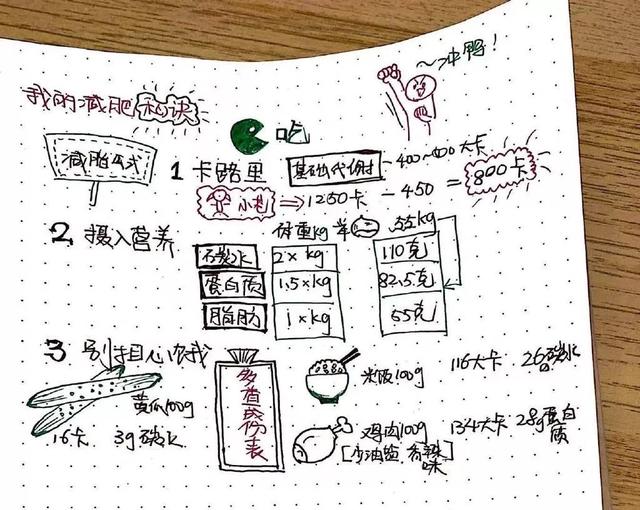 ~冲鸭!
我的减肥秘诀
吃
减脂公式
1 卡路里 基础代谢 - 400~400大卡
小苍 => 1250卡 - 450 = 800卡
2 摄入营养 体重kg 55kg
碳水 2×kg 110克
蛋白质 1.5×kg 82.5克
脂肪 1×kg 55克
3 别担心有我
多查成份表
米饭100g 116大卡 26g碳水
黄瓜100g
16卡 3g碳水
鸡肉100g 134大卡 28g蛋白质
[少油盐 香辣味]